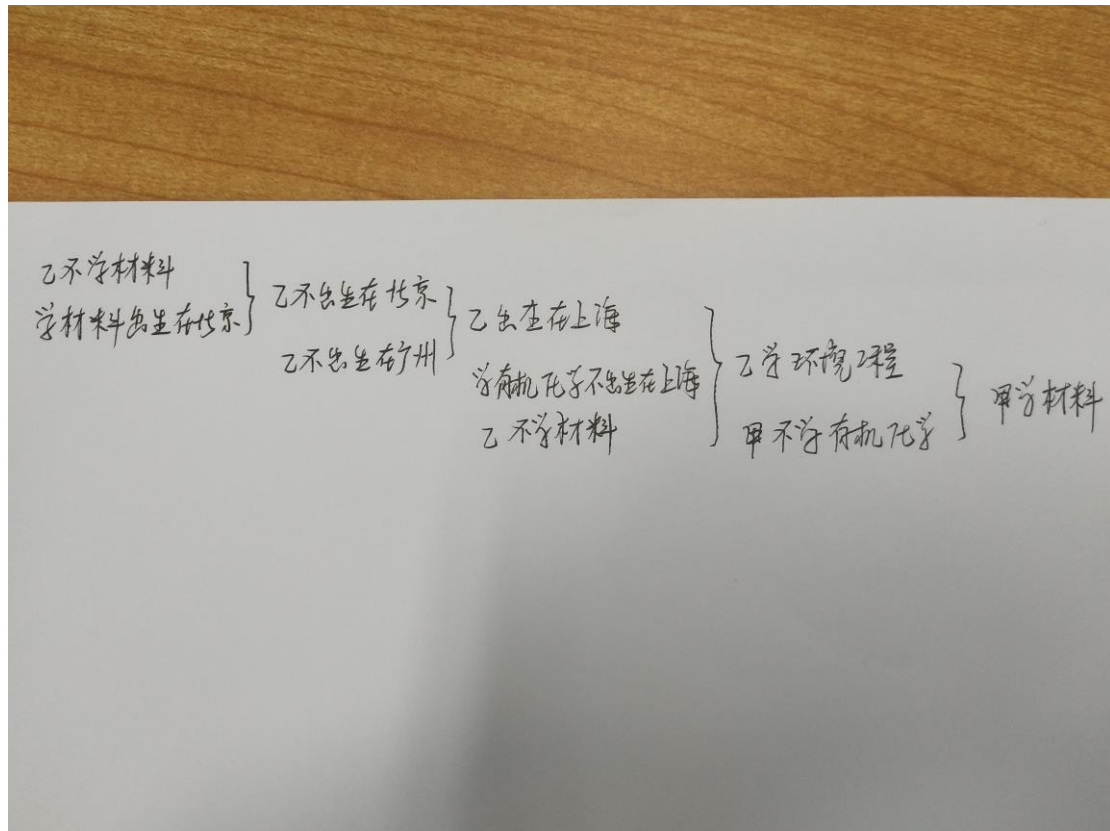 乙不学材料
学材料出生在北京
乙不出生在北京
乙不出生在广州
乙出生在上海
学有机化学不出生在上海
乙不学材料
乙学环境工程
甲不学有机化学
甲学材料